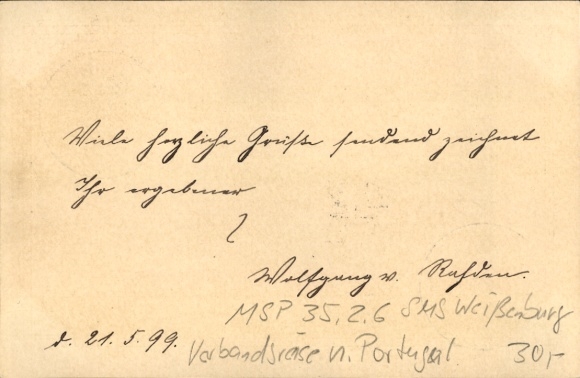 Viele herzliche Grüße sendend zeichnet
Ihr ergebener
Wolfgang v. Rahden.
d. 21.5.99.
MSP 35.2.6 SMS Weißenburg
Verbandsreise n. Portugal 30,-